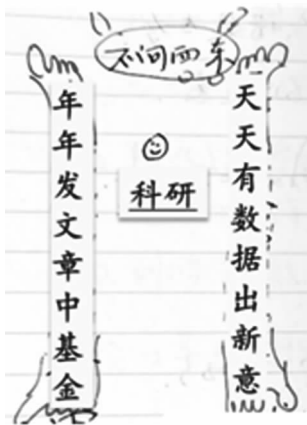 不问西东
天天有数据出新意
年年发文章中基金
科研